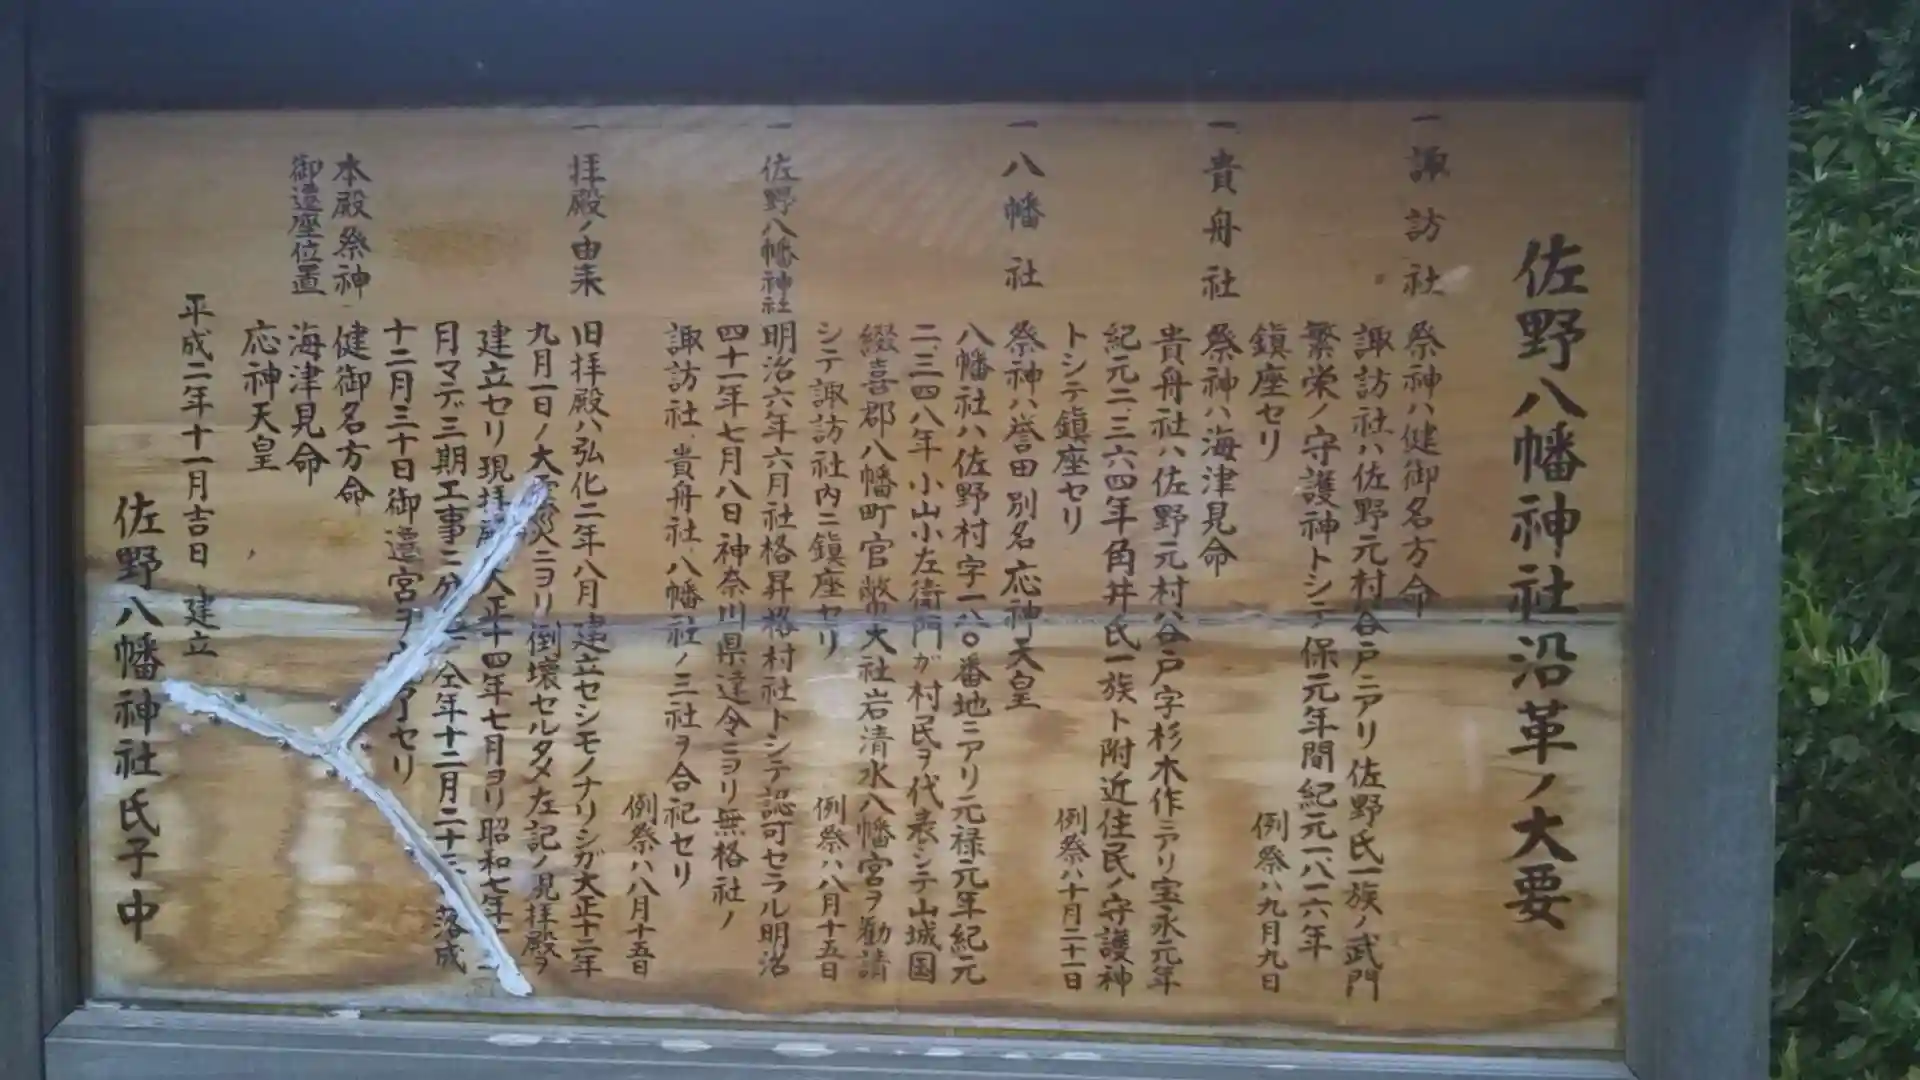 佐野八幡神社沿革ノ大要
一 諏訪社 祭神ハ健御名方命
諏訪社ハ佐野元村谷戸ニアリ佐野氏一族ノ武門
繁栄ノ守護神トシテ保元年間紀元一八一六年
鎮座セリ 例祭ハ九月九日
一 貴舟社 祭神ハ海津見命
貴舟社ハ佐野元村谷戸字杉木作ニアリ宝永元年
紀元二、三六四年角井氏一族ト附近住民ノ守護神
トシテ鎮座セリ 例祭ハ十月二十一日
一 八幡社 祭神ハ誉田別名応神天皇
八幡社ハ佐野村字一八〇番地ニアリ元禄元年紀元
二、三四八年小山小左衛門ガ村民ヲ代表シテ山城国
綴喜郡八幡町官幣大社岩清水八幡宮ヲ勧請
シテ諏訪社内ニ鎮座セリ 例祭ハ八月十五日
一 佐野八幡神社 明治六年六月社格昇格村社トシテ認可セラル明治
四十一年七月八日神奈川県達令ニヨリ無格社ノ
諏訪社、貴舟社、八幡社ノ三社ヲ合祀セリ
例祭ハ八月十五日
一 拝殿ノ由来 旧拝殿ハ弘化二年八月建立セシモノナリシガ大正十二年
九月一日ノ大震災ニヨリ倒壊セルタメ左記ノ見拝殿ヲ
建立セリ現拝殿 大正十四年七月ヨリ昭和七年
月マデ三期工事ニ分 仝年十二月二十 落成
十二月三十日御遷宮ヲ 了セリ
本殿祭神 健御名方命
御遷座位置 海津見命
応神天皇
平成二年十一月吉日 建立
佐野八幡神社氏子中